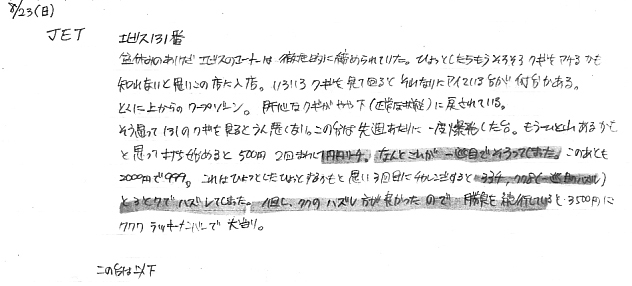 8/23(日)
JET エビス131番
盆休みのあいだエビスのコーナーは徹底的に締められていた。ひょっとしたらもうそろそろクギをアケるかも
知れないと思いこの店に入店。いろいろクギを見て回るとそれなりにアイている台が何台かある。
とくに上からのワープゾーン。肝心なクギがやや下(正常な状態)に戻されている。
そう思って131のクギを見るとそう悪くない。この台は先週あたりに一度爆発した台。もう一度あるかも
と思って打ち始めると500円2回まわして リーチ。なんとこれが一巡目でそろってしまった。このあとも
2000円で999。これはひょっとしたひょっとするかもと思い3回目にチャレンジすると334, 778(一巡 )
と3と7でハズしてしまった。但し、777のハズし方が良かったので 続行していると3500円に
777ラッキーナンバーで大当り。
この台は以下